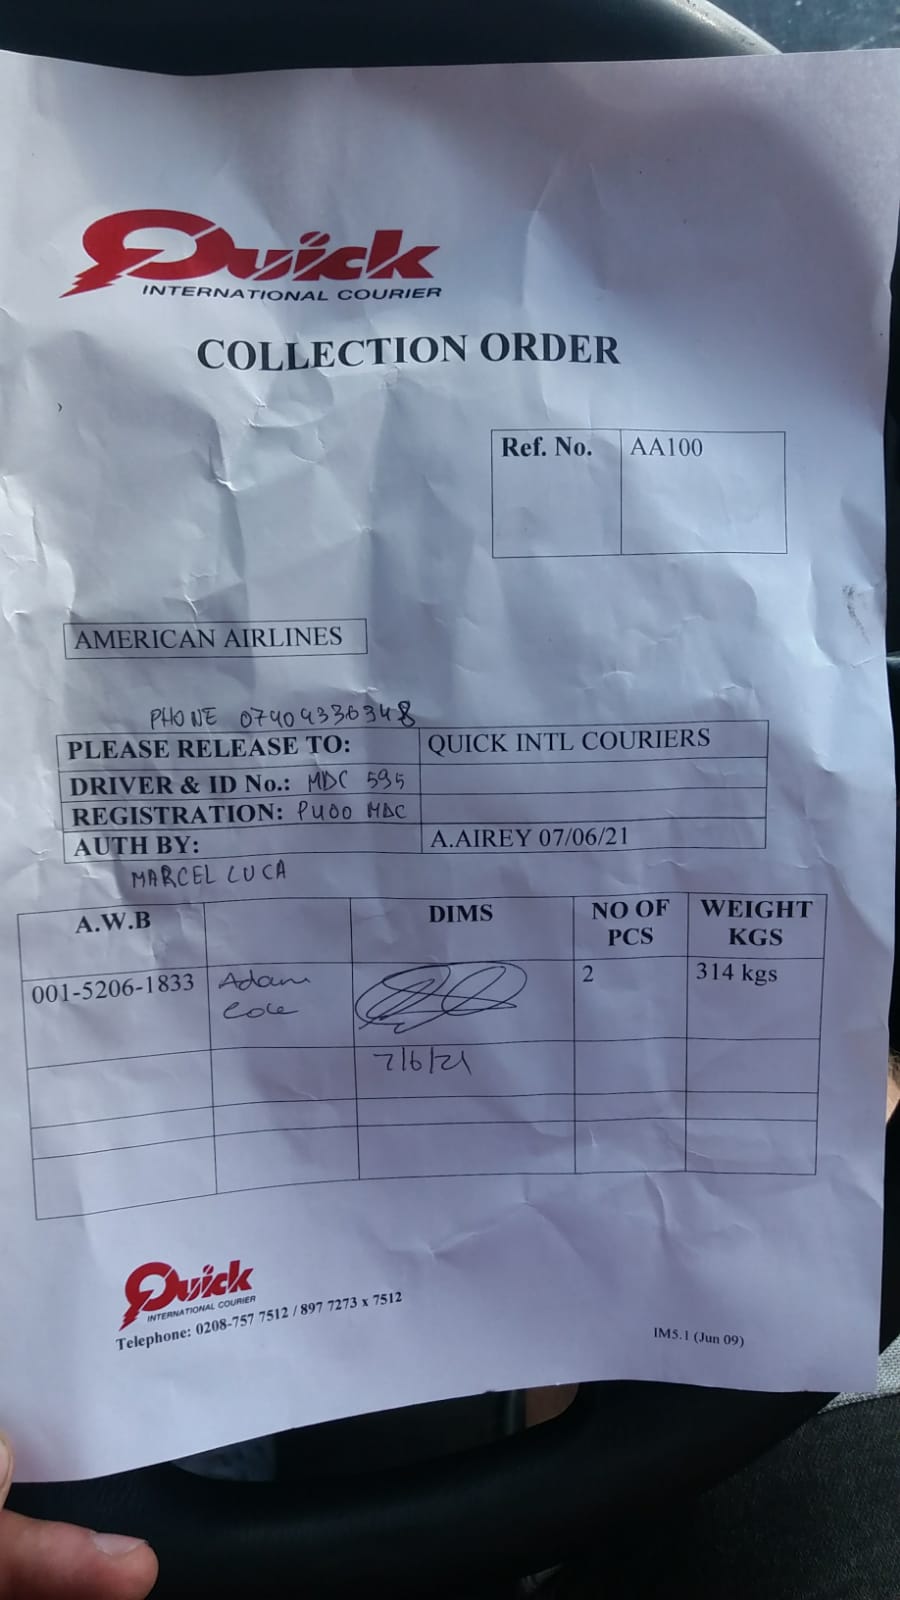 Quick
INTERNATIONAL COURIER
COLLECTION ORDER
Ref. No. AA100
AMERICAN AIRLINES
PHONE 07404336348
PLEASE RELEASE TO: QUICK INTL COURIERS
DRIVER & ID No.: MDC 595
REGISTRATION: PU00 MDC
AUTH BY: A.AIREY 07/06/21
MARCEL LUCA
A.W.B DIMS NO OF PCS WEIGHT KGS
001-5206-1833 Adam Cole 2 314 kgs
7/6/21
Quick
INTERNATIONAL COURIER
Telephone: 0208-757 7512 / 897 7273 x 7512
IM5.1 (Jun 09)